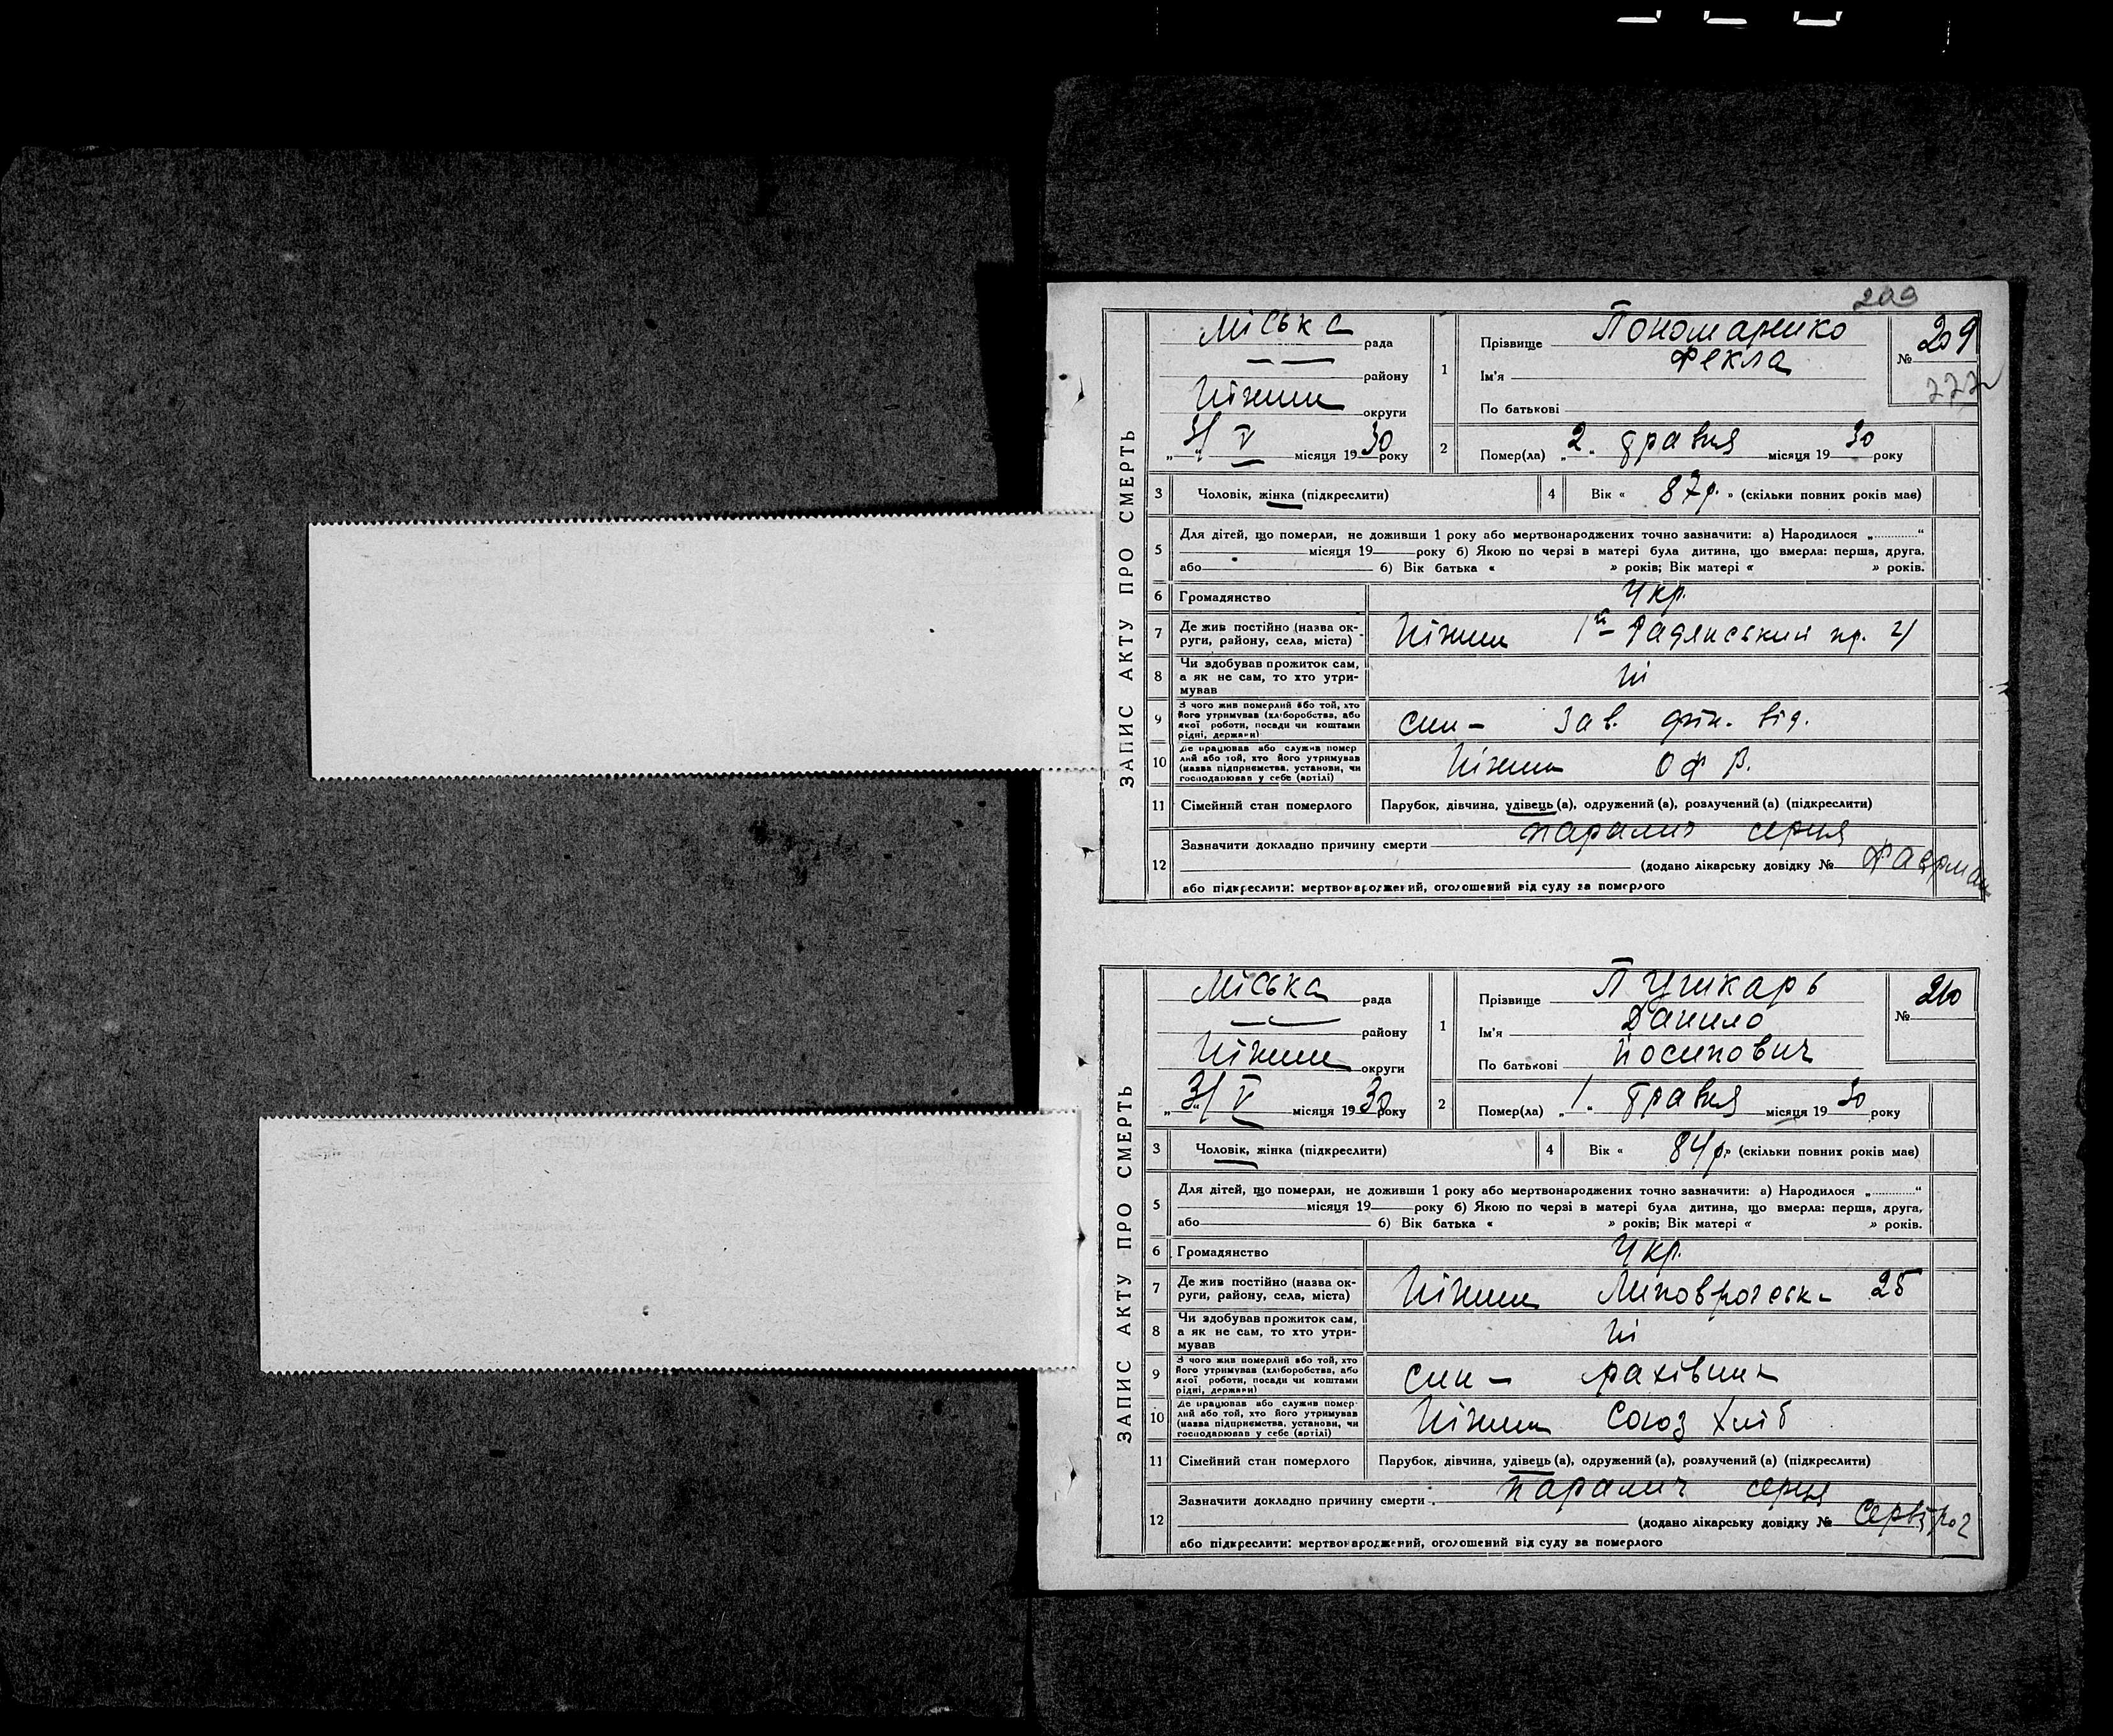 209
ЗАПИС АКТУ ПРО СМЕРТЬ
Міська рада
району
Ніжин округи
„3" V місяця 1930 року
1
Прізвище Пономаренко
Ім'я Фекла
По батькові
№ 209
2
Помер(ла) „2" травня місяця 1930 року
3 Чоловік, жінка (підкреслити)
4 Вік « 87 р. » (скільки повних років має)
5
Для дітей, що померли, не доживши 1 року або мертвонароджених точно зазначити: а) Народилося „ "
місяця 19 року б) Якою по черзі в матері була дитина, що вмерла: перша, друга,
або б) Вік батька « » років; Вік матері « » років.
6 Громадянство Укр.
7 Де жив постійно (назва ок-
руги, району, села, міста)
Ніжин 1й Радянський пр. 21
8 Чи здобував прожиток сам,
а як не сам, то хто утри-
мував
ні
9 З чого жив померлий або той, хто
його утримував (хліборобства, або
якої роботи, посади чи коштами
рідні, держави)
син - Зав. фін. від.
10 Де працював або служив помер
лий або той, хто його утримував
(назва підприємства, установи, чи
господарював у себе (артілі)
Ніжин ОФВ.
11 Сімейний стан померлого Парубок, дівчина, удівець (а), одружений (а), розлучений (а) (підкреслити)
12
Зазначити докладно причину смерти параліч серця
(додано лікарську довідку №
або підкреслити: мертвонароджений, оголошений від суду за померлого
ЗАПИС АКТУ ПРО СМЕРТЬ
Міська рада
району
Ніжин округи
„3" V місяця 1930 року
1
Прізвище Пушкарь
Ім'я Данило
По батькові Йосипович
№ 210
2
Помер(ла) „1" травня місяця 1930 року
3 Чоловік, жінка (підкреслити)
4 Вік « 84 р. » (скільки повних років має)
5
Для дітей, що померли, не доживши 1 року або мертвонароджених точно зазначити: а) Народилося „ "
місяця 19 року б) Якою по черзі в матері була дитина, що вмерла: перша, друга,
або б) Вік батька « » років; Вік матері « » років.
6 Громадянство Укр.
7 Де жив постійно (назва ок-
руги, району, села, міста)
Ніжин 25
8 Чи здобував прожиток сам,
а як не сам, то хто утри-
мував
ні
9 З чого жив померлий або той, хто
його утримував (хліборобства, або
якої роботи, посади чи коштами
рідні, держави)
син - рахівник
10 Де працював або служив помер-
лий або той, хто його утримував
(назва підприємства, установи, чи
господарював у себе (артілі)
Ніжин Союз хліб
11 Сімейний стан померлого Парубок, дівчина, удівець (а), одружений (а), розлучений (а) (підкреслити)
12
Зазначити докладно причину смерти параліч серця
(додано лікарську довідку №
або підкреслити: мертвонароджений, оголошений від суду за померлого